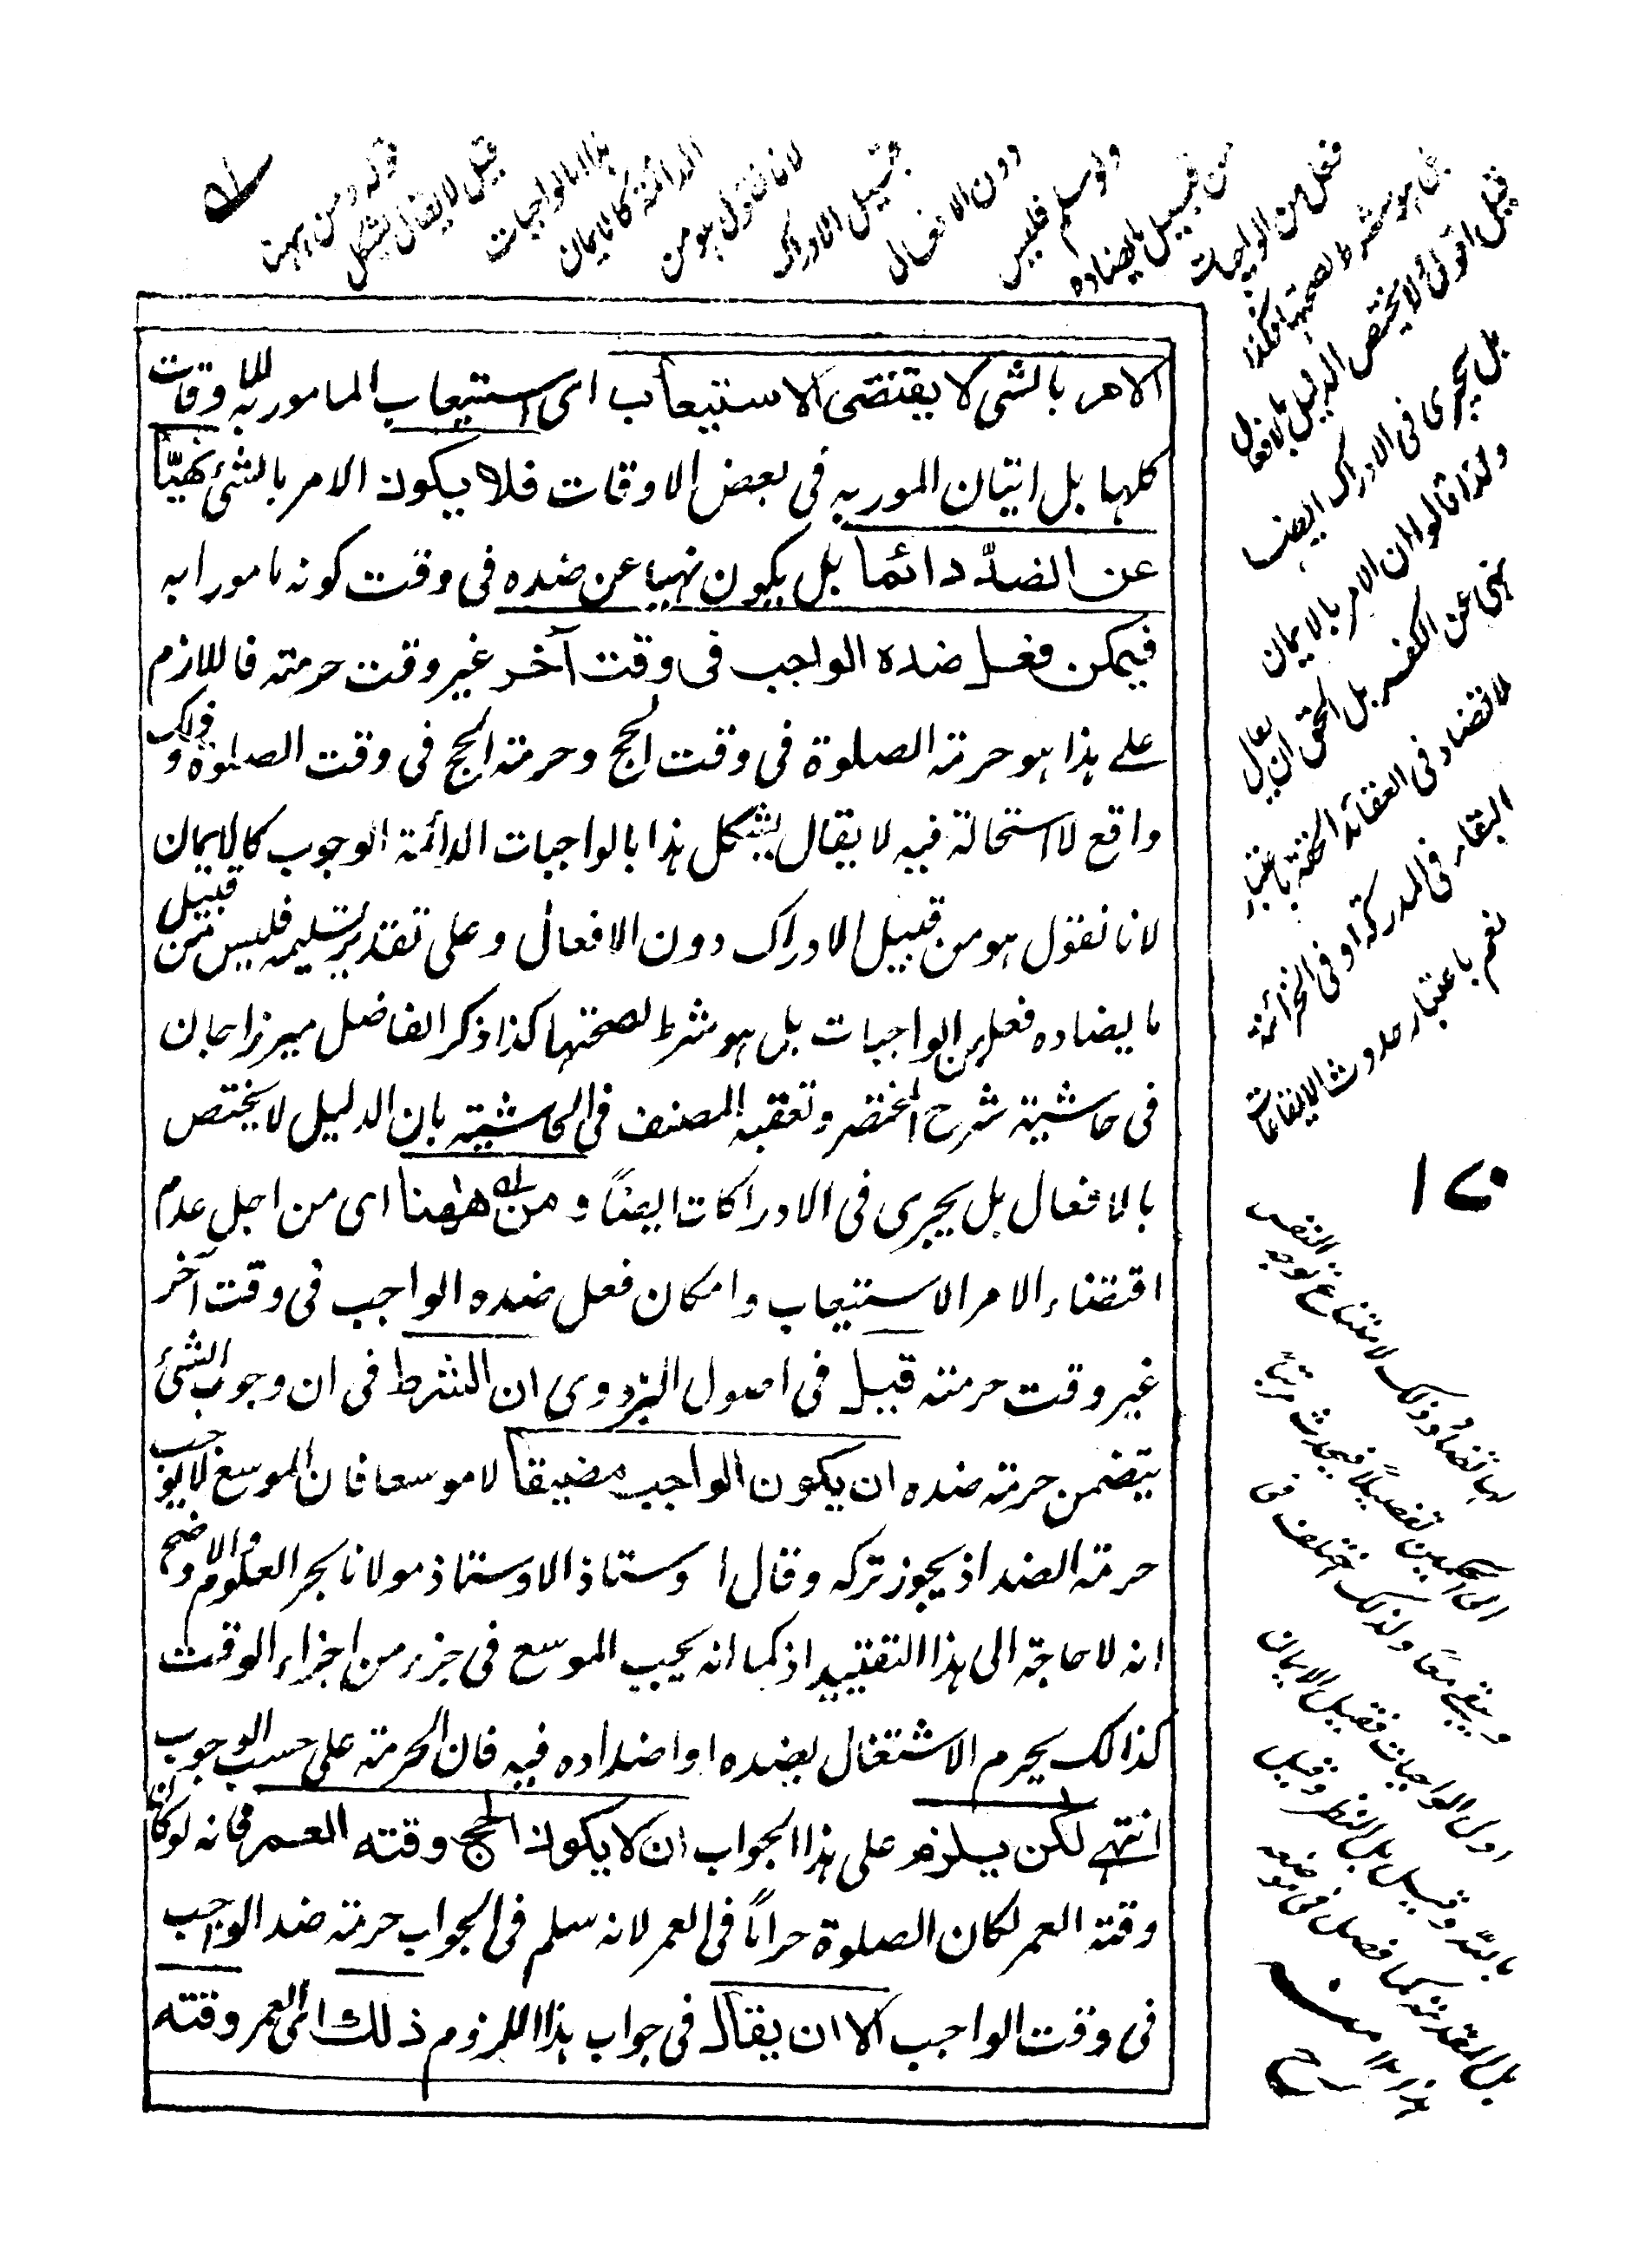 الامر بالشى لا يقتضى الاستيعاب اى استيعاب المامور به للاوقات
كلها بل اتيان المور به فى بعض الاوقات فلا يكون الامر بالشئ نهيّا
عن الضدّ دائما بل يكون نهيا عن ضده فى وقت كونه مامورا به
فيمكن فعل ضده الواجب فى وقت آخر غير وقت حرمته فاللازم
على هذا هو حرمة الصلوة فى وقت الحج وحرمة الحج فى وقت الصلوة وذلك
واقع لا استحالة فيه لا يقال يشكل هذا بالواجبات الدائمة الوجوب كالايمان
لانا نقول هو من قبيل الادراك دون الافعال وعلى تقدير تسليمه فليس من قبيل
ما يضاده فعل من الواجبات بل هو شرط لصحتها كذا ذكر الفاضل ميرزا جان
فى حاشية شرح المختصر وتعقبه المصنف فى الحاشية بان الدليل لا يختص
بالافعال بل يجرى فى الادراكات ايضاً ومن ههنا اى من اجل عدم
اقتضاء الامر الاستيعاب وامكان فعل ضده الواجب فى وقت آخر
غير وقت حرمته قيل فى اصول البزدوى ان الشرط فى ان وجوب الشئ
يتضمن حرمة ضده ان يكون الواجب مضيقا لا موسعا فان الموسع لا يوجب
حرمة الضد اذ يجوز تركه وقال اوستاذ الاوستاذ مولانا بحر العلوم والاوضح
انه لا حاجة الى هذا التقييد اذ كما انه يجب الموسع فى جزء من اجزاء الوقت
كذالك يحرم الاشتغال بضده او اضداده فيه فان الحرمة على حسب الوجوب
انتهى لكن يلزم على هذا الجواب ان لا يكون الحج وقته العمر فانه لو كان
وقته العمر لكان الصلوة حراماً فى العمر لانه سلم فى الجواب حرمة ضد الواجب
فى وقت الواجب الا ان يقال فى جواب هذا اللزوم ذلك اى العمر وقته
قوله ومن ههنا
قيل لا يقال يشكل
هذا بالواجبات
الدائمة كالايمان
لانا نقول هو من
قبيل الادراك
دون الافعال
ولو سلم فليس
من قبيل ما يضاده
فعل من الواجبات
بل هو شرط لصحتها فكذا
قيل اقول لا يختص الدليل بالافعال
بل يجرى فى الادراك ايضا
ولذا قالوا ان الامر بالايمان
نهى عن الكفر بل الحق ان يقال
لا تضاد فى العقائد الحقة باعتبار
البقاء فى المدركة او فى الخزانة
نعم باعتبار حدوث الالتفات
لها تضاد وذلك لامتناع توجه النفس
الى الحكمين تفصيلاً فيحدث مرتباً
ويبقى معا ولذلك اختلف فى
اول الواجبات فقيل الايمان
بالله وقيل بل النظر وقيل
بل المقدمة كما فصل فى موضعه
منه